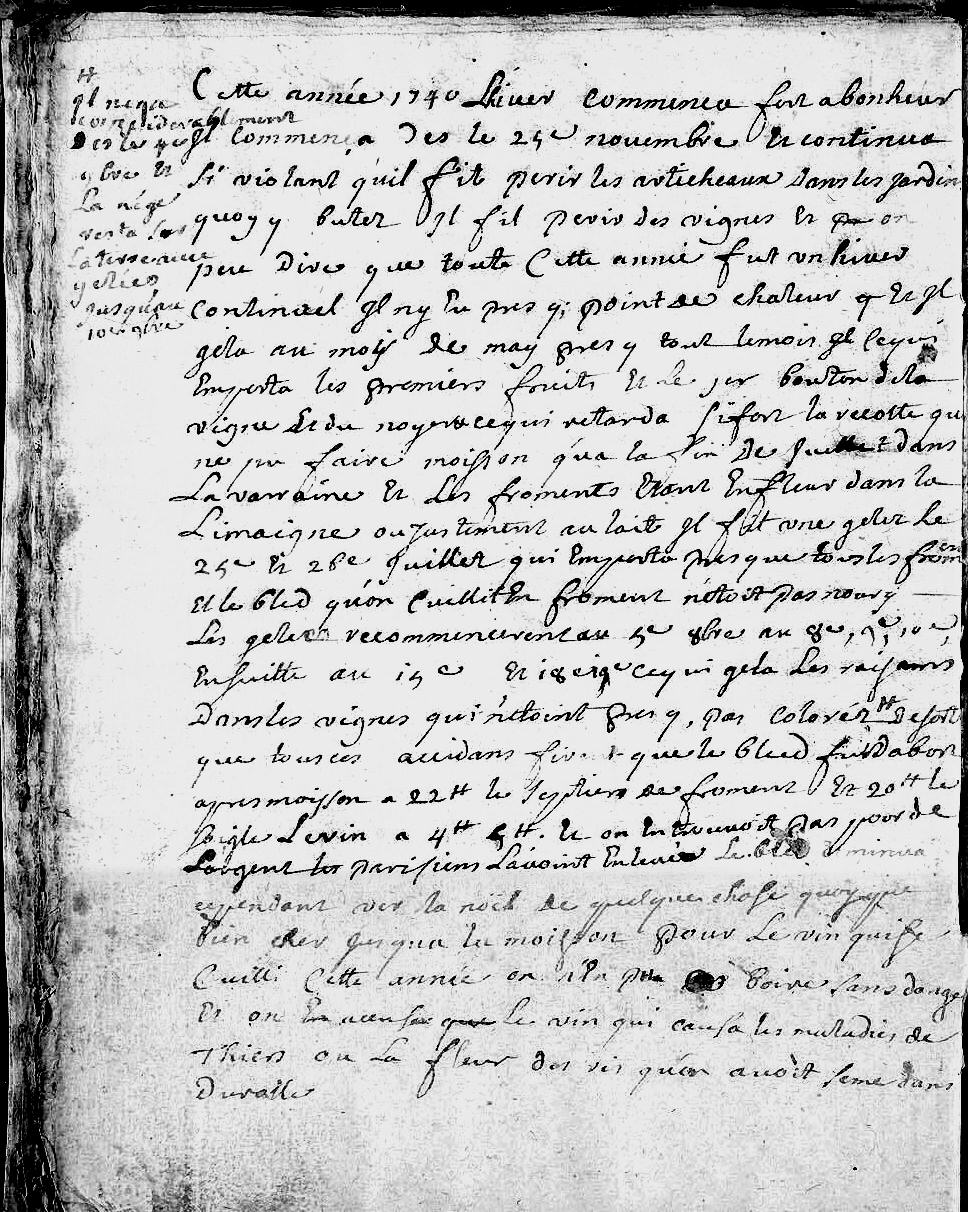 Cette année 1740 Lhiver commenca fort abonheur
Jl commença des le 25e novembre Et continua
si violant quil fit perir les articheaux dans les jardin
quoyy butez Jl fit perir des vignes Et on
peu Dire que toute Cette année fut un hiver
continuel Jl ny Eu pres q; point de chaleur Et Jl
gela au mois de may pres q tout le mois Jl Ce qui
Emporta les premiers fruits Et Le 1er bouton dela
vigne Et du noyer ce qui retarda si fort la recolte qu
ne pu faire moisson qua la fin De Juillet dans
La varraine Et Les froments Etant En fleur dans la
Limaigne ou justement au lait Jl fit une gelez Le
25e Et 26e Juillet qui Emporta presque tous les from en
Et le bled quon Cuillit En froment nétoit pas noury
Les gelez recommencerent au 5e 8bre au 8e, 9e, 10e,
Ensuitte au 15e Et 18e 19e ce qui gela Les raisains
Dans les vignes qui nétoint pres q, pas coloréz # De sort
que tous ces accidans firent que le bleed fut Dabort
apres moisson a 22tt le septier de froment Et 20tt le
seigle Le vin a 4tt 5tt. Et on En trouvoit pas pour de
Largent les parisiens Lavoint Enlevéz Le bled diminua
cependant ver la noël de quelque chose quoy que
bien cher jusqua la moisson pour Le vin qui se
Cuilli Cette année on nEn pu boire sans dange
Et on En accusa que Le vin qui causa les maladies de
Thiers ou La fleur des ris quon avoit semé dans
Duralle
#
Jl nega
considerablement
Des le 4e
9bre Et
La nége
resta sur
La terre avec
gelées
jusquau
10e 9bre